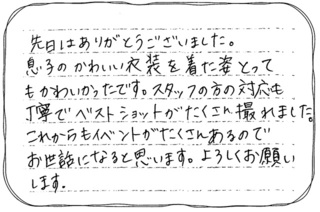 先日はありがとうございました。
息子のかわいい衣装を着た姿とって
もかわいかったです。スタッフの方の対応も
丁寧でベストショットがたくさん撮れました。
これからもイベントがたくさんあるので
お世話になると思います。よろしくお願い
します。